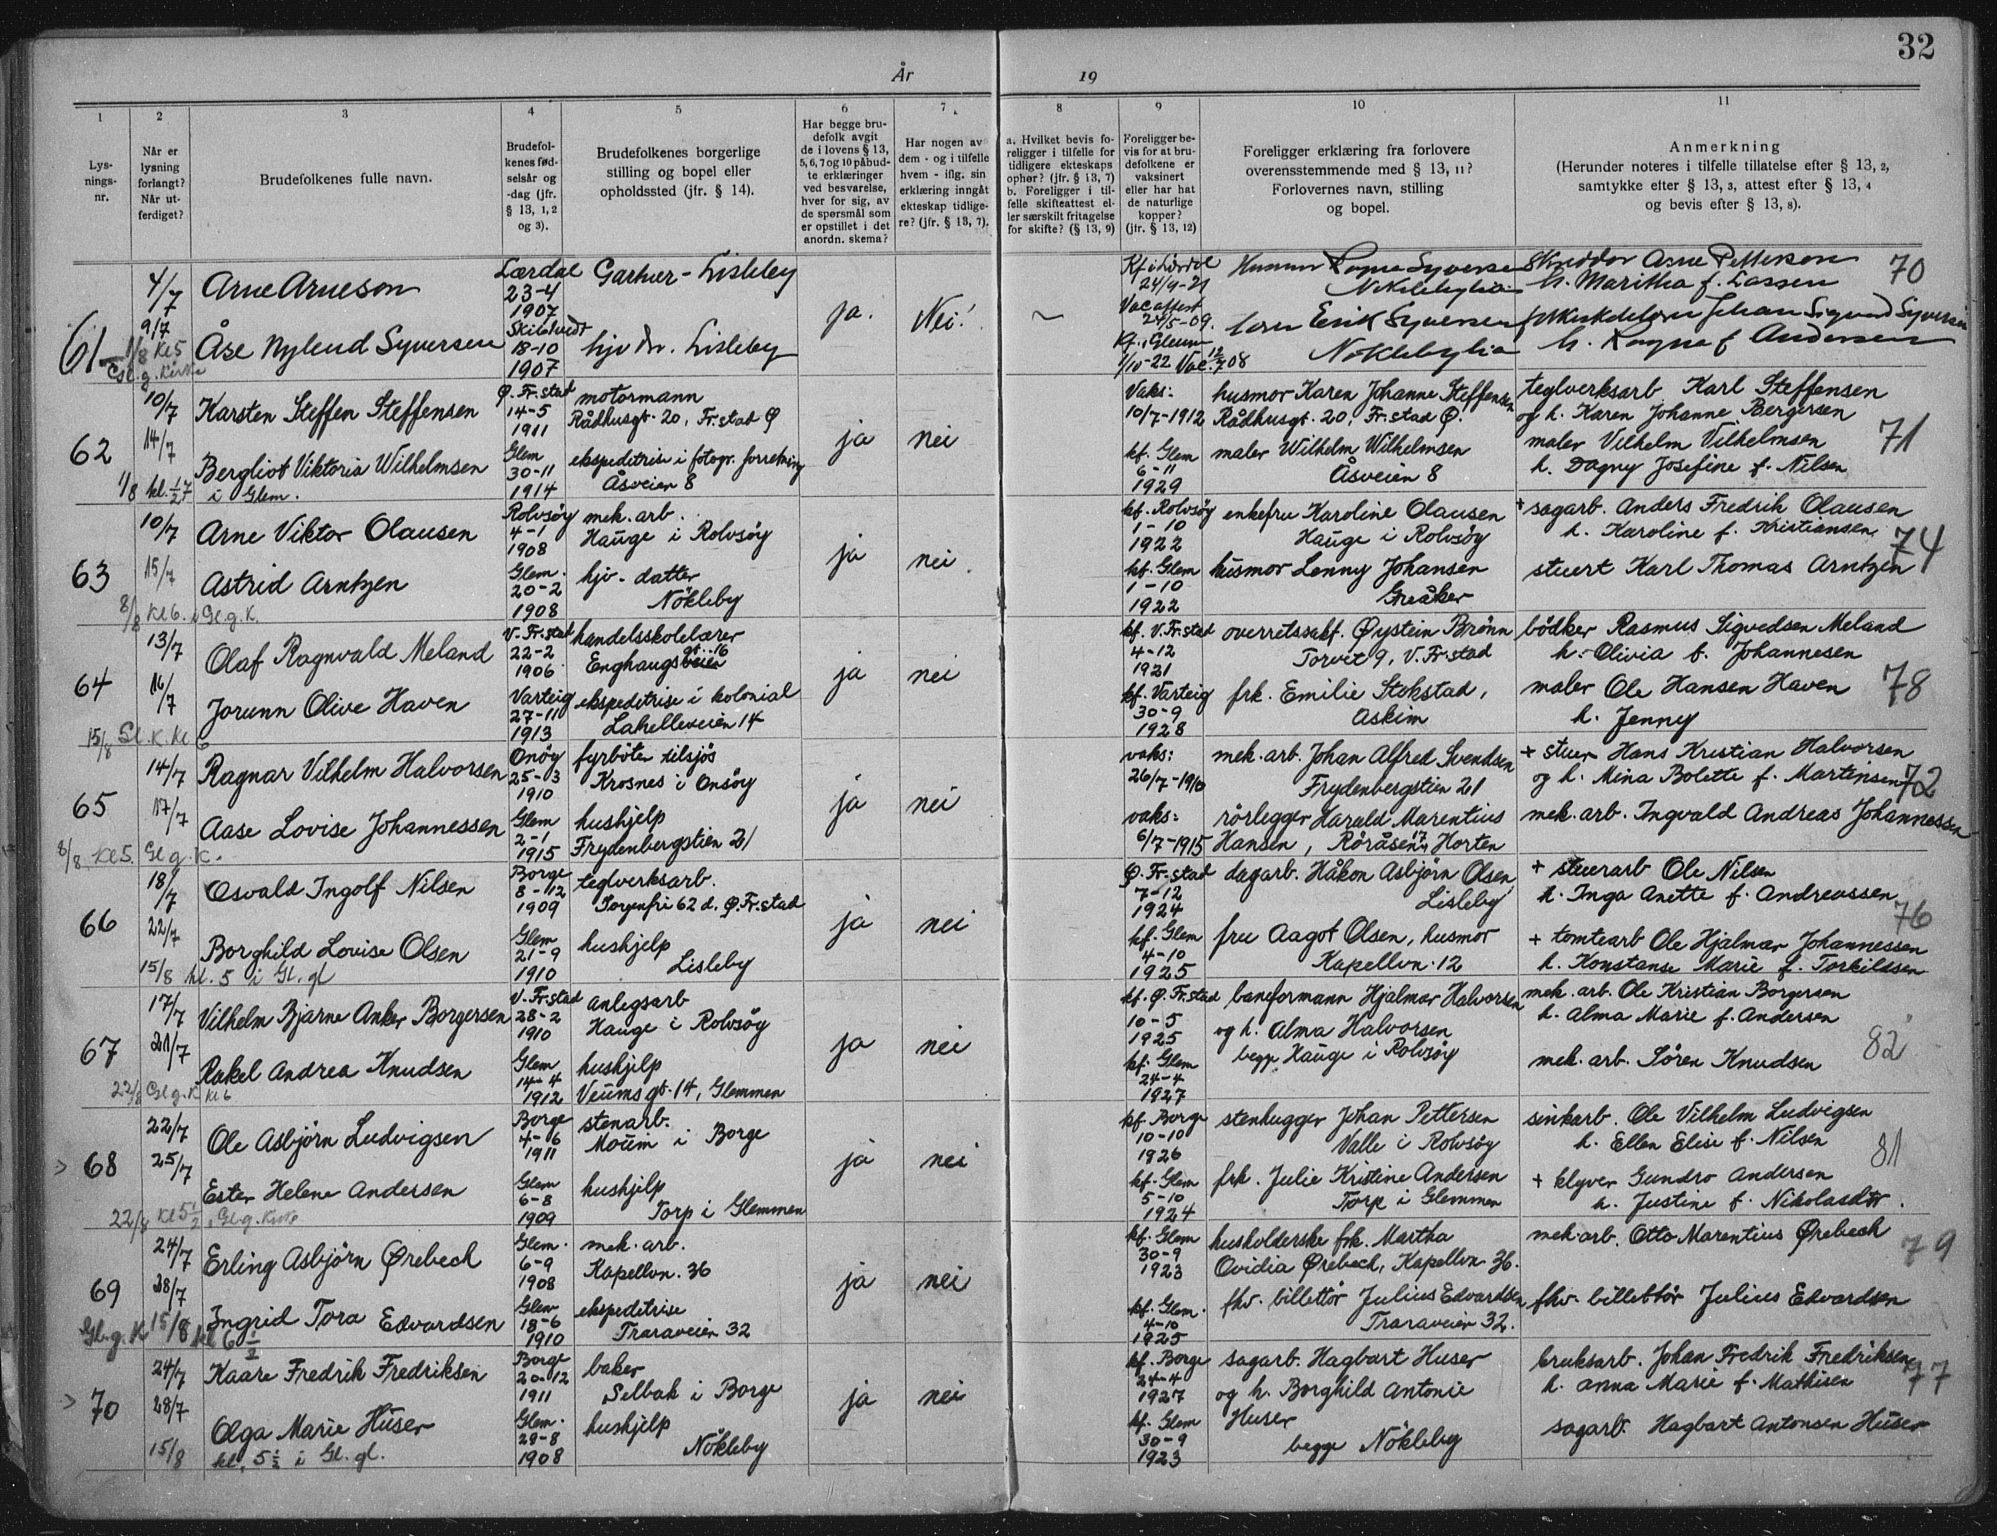 32
År
19
1
2
3
4
5
6
7
8
9
10
11
Lys-
nings-
nr.
Når er
lysning
forlangt?
Når ut-
ferdiget?
Brudefolkenes fulle navn.
Brudefol-
kenes fød-
selsår og
-dag (jfr.
§ 13, 1, 2
og 3).
Brudefolkenes borgerlige
stilling og bopel eller
opholdssted (jfr. § 14).
Har begge bru-
defolk avgit
de i lovens § 13,
5, 6, 7 og 10 påbud-
te erklæringer
ved besvarelse,
hver for sig, av
de spørsmål som
er opstillet i det
anordn. skema?
Har nogen av
dem - og i tilfelle
hvem - iflg. sin
erklæring inngåt
ekteskap tidlige-
re? (jfr. § 13, 7).
a. Hvilket bevis fo-
religger i tilfelle for
tidligere ekteskaps
ophør? (jfr. § 13, 7)
b. Foreligger i til-
felle skifteattest el-
ler særskilt fritagelse
for skifte? (§ 13, 9)
Foreligger be-
vis for at bru-
defolkene er
vaksinert
eller har hat
de naturlige
kopper?
(jfr. § 13, 12)
Foreligger erklæring fra forlovere
overensstemmende med § 13, 11?
Forlovernes navn, stilling
og bopel.
Anmerkning
(Herunder noteres i tilfelle tillatelse efter § 13, 2,
samtykke efter § 13, 3, attest efter § 13, 4
og bevis efter § 13, 8).
61
4/7
9/7
1/8 Kl 5
g. Kirke
Arne Arneson
Åse Nylend Syversen
Lærdal
23-4
1907
18-10
1907
Gartner - Lisleby
hjv dr. Lisleby
ja.
Nei!
~
24/9-21
Vacattest
24/5-09.
Kf. i Glem
1/10-22 Vac. 12/7 08
Ragna Syversen
Nøklebylia
Erik Syversen
Nøklebylia
Skredder Arne Petterson
h. Maritha f. Lassen
Johan Sigvard Syversen
h. Ragna f. Andersen
70
62
10/7
14/7
1/8 kl. 1/2 7
i Glem.
Karsten Steffen Steffensen
Bergliot Viktoria Wilhelmsen
Ø. Fr.stad
14-5
1911
Glem
30-11
1914
motormann
Rådhusgt. 20, Fr.stad Ø
ekspeditrise i fotogr. forretning
Åsveien 8
ja
nei
Vaks:
10/7-1912
kf. Glem
6-11
1929
husmor Karen Johanne Steffensen
Rådhusgt. 20, Fr.stad Ø.
maler Wilhelm Wilhelmsen
Åsveien 8
teglverksarb Karl Steffensen
og h. Karen Johanne Bergersen
maler Vilhelm Vilhelmsen
h. Dagny Josefine f. Nilsen
71
63
10/7
15/7
8/8 Kl 6. i Gl. g. K.
Arne Viktor Olausen
Astrid Arntzen
Rolvsøy
4-1
1908
Glem.
20-2
1908
mek. arb.
Hauge i Rolvsøy
hjv. datter
Nökleby
ja
nei
kf. Rolvsöy
1-10
1922
kf. Glem
1-10
1922
enkefru Karoline Olausen
Hauge i Rolvsøy
husmor Lenny Johansen
Greåker
+ sagarb. Anders Fredrik Olausen
h. Karoline f. Kristiansen.
stuert Karl Thomas Arntzen
74
64
13/7
16/7
15/8 Gl. K. Kl 6
Olaf Ragnvald Meland
Jorunn Olive Haven
V. Fr.stad
22-2
1906.
Varteig
27-11
1913
handelsskolelærer
Enghaugsveien gt. 16
ekspeditrise i kolonial
Lahelleveien 14
ja
nei
kf. V. Fr.stad
4-12
1921
kf. Varteig
30-9
1928
overretssakf. Øystein Brönn
Torvet 9, V. Fr.stad
frk. Emilie Stokstad,
Askim
bödker Rasmus Sigvedsen Meland
h. Olivia f. Johannesen
maler Ole Hansen Haven
h. Jenny
78
65
14/7
17/7
8/8 Kl 5. Gl. g. K.
Ragnar Vilhelm Halvorsen
Aase Lovise Johannessen
Onöy
25-03
1910
Glem
2-1
1915
fyrböter tilsjös
Krosnes i Onsöy
hushjelp
Frydenbergstien 21
ja
nei
vaks:
26/7-1910
vaks:
6/7-1915
mek. arb. Johan Alfred Svendsen
Frydenbergstien 21
rörlegger Harald Marentius
Hansen, Röråsen 17, Horten
+ stuer Hans Kristian Halvorsen
og h. Mina Bolette f. Martinsen
mek. arb. Ingvald Andreas Johannessen
72
66
18/7
22/7
15/8 kl. 5 i Gl. gl
Osvald Ingolf Nilsen
Borghild Lovise Olsen
Borge
8-12
1909
Glem
21-9
1910
teglverksarb.
Sorgenfri 62 d. Ø. Fr.stad
hushjelp
Lisleby
ja
nei
Ø. Fr.stad
7-12
1924
kf. Glem
4-10
1925
dagarb. Håkon Asbjørn Olsen,
Lisleby
fru Aagot Olsen, husmor
Kapellvn. 12
+ stuerarb Ole Nilsen
h. Inga Anette f. Andreassen
+ tomtearb Ole Hjalmar Johannessen
h. Konstanse Marie f. Torkildsen
76
67
17/7
21/7
22/8 Gl g. K Kl 6
Vilhelm Bjarne Anker Borgersen
Rakel Andrea Knudsen
V. Fr.stad
28-2
1910
Glem
14-4
1912
anlegsarb
Hauge i Rolvsøy
hushjelp
Veumsgt. 14, Glemmen
ja
nei
kf. Ø. Fr.stad
10-5
1925
kf. Glem
24-4
1927
baneformann Hjalmar Halvorsen
og h. Alma Halvorsen
begge Hauge i Rolvsøy
mek. arb. Ole Kristian Borgersen
h. Alma Marie f. Andersen
mek. arb. Sören Knudsen
82
> 68
22/7
25/7
22/8 Kl 5 1/2 i Gl g. Kirke
Ole Asbjörn Ludvigsen
Ester Helene Andersen
Borge
4-6
1911
Glem
6-8
1909
stenarb.
Moum i Borge
hushjelp
Torp i Glemmen
ja
nei
kf. Borge
10-10
1926
kf. Glem
5-10
1924
stenhugger Johan Pettersen
Valle i Rolvsøy
frk. Julie Kristine Andersen
Torp i Glemmen
sinkarb. Ole Vilhelm Ludvigsen
h. Ellen Elise f. Nilsen
+ klyver Gundro Andersen
h. Justine f. Nikolasdtr.
81
69
24/7
28/7
Gl. g. K 15/8 kl 6 1/2
Erling Asbjörn Ørebech
Ingrid Tora Edvardsen
Glem.
6-9
1908
Glem
18-6
1910
mek. arb.
Kapellvn. 36
ekspeditrise
Traraveien 32
ja
nei
kf. Glem
30-9
1923
kf. Glem.
4-10
1925
husholderske frk. Martha
Ovidia Ørebech, Kapellvn 36.
fhv. billettör Julius Edvardsen
Traraveien 32.
mek. arb. Otto Marentius Ørebech
fhv. billettör Julius Edvardsen
79
> 70
24/7
28/7
15/8 kl. 5 1/2 i Gl. gl.
Kaare Fredrik Fredriksen
Olga Marie Huser
Borge
20-12
1911
Glem.
29-8
1908
baker
Selbak i Borge
hushjelp
Nökleby
ja
nei
kf. Borge
24-4
1927
kf. Glem
30-9
1923
sagarb. Hagbart Huser
og h. Borghild Antonie
Huser
begge Nökleby
bruksarb. Johan Fredrik Fredriksen
h. Anna Marie f. Mathisen
sagarb. Hagbart Antonsen Huser
77